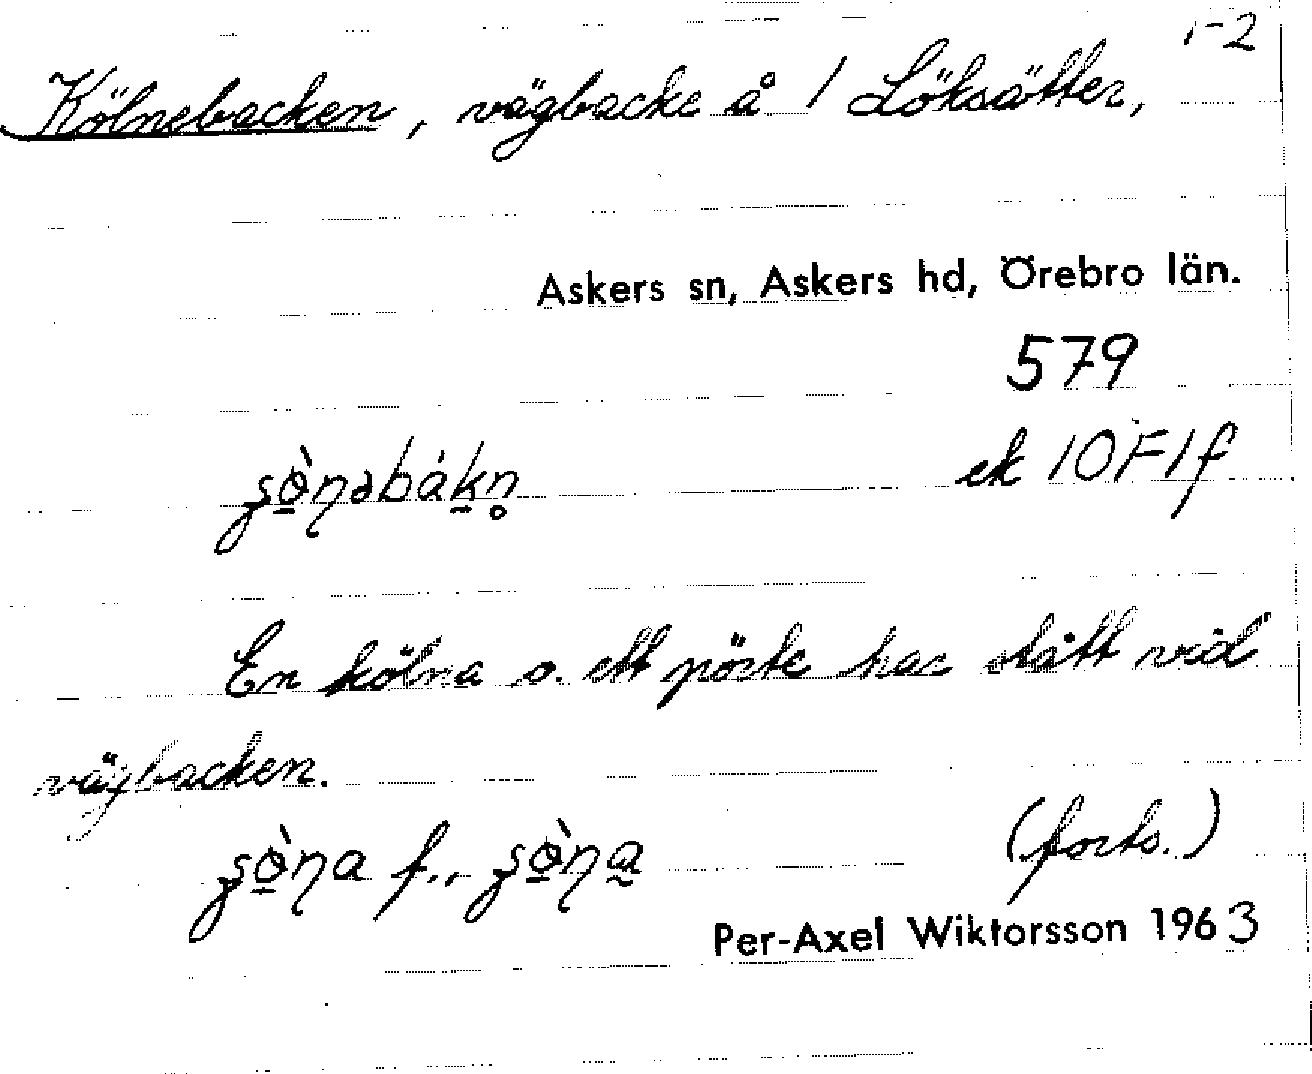 1-2
Kölnebacken, vägbacke å 1 Löksätter,
Askers sn, Askers hd, Örebro län.
579
ek 10F1f
En kölna o. ett pörte har stått vid
vägbacken.
f.,
(forts.)
Per-Axel Wiktorsson 1963